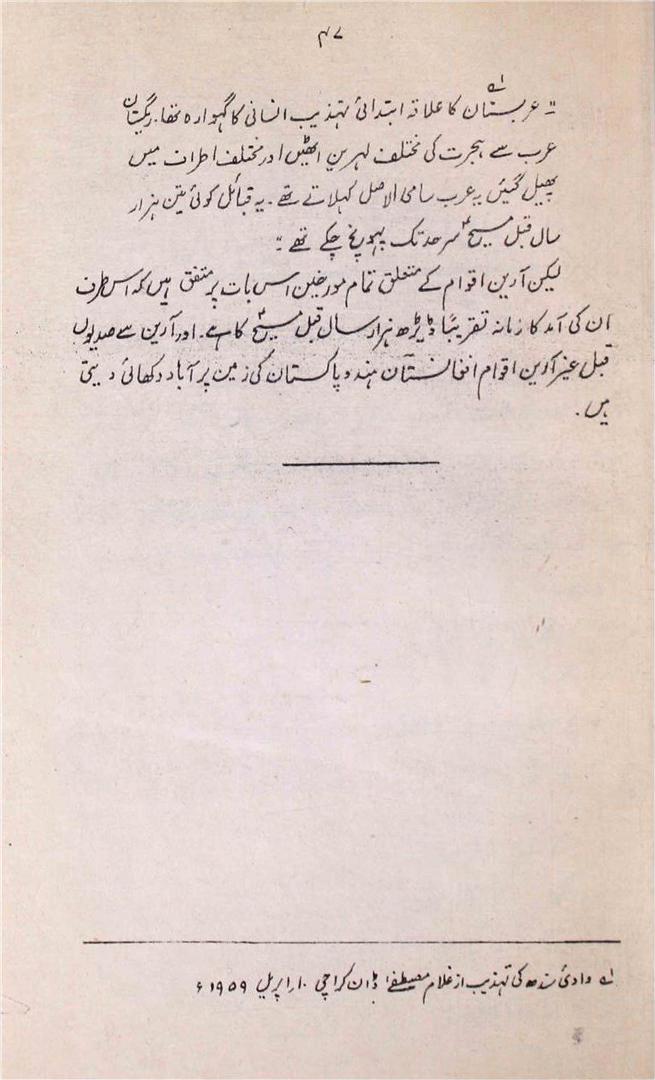 ۴۷
"عربستان ؎۱ کا علاقہ ابتدائی تہذیب انسانی کا گہوارہ تھا۔ ریگستان
عرب سے ہجرت کی مختلف لہریں اٹھیں اور مختلف اطراف میں
پھیل گئیں یہ عرب سامی الاصل کہلاتے تھے۔ یہ قبائل کوئی تین ہزار
سال قبل مسیحؑ سرحد تک پہونچ چکے تھے"
لیکن آرین اقوام کے متعلق تمام مورخین اس بات پر متفق ہیں کہ اس طرف
ان کی آمد کا زمانہ تقریباً ڈیڑھ ہزار سال قبل مسیحؑ کا ہے۔ اور آرین سے صدیوں
قبل غیر آرین اقوام افغانستان ہند و پاکستان کی زمین پر آباد دکھائی دیتی
ہیں۔
؎۱ وادیٔ سندھ کی تہذیب از غلام مصطفےٰ ڈان کراچی ۱۰ اپریل ۱۹۵۹ء